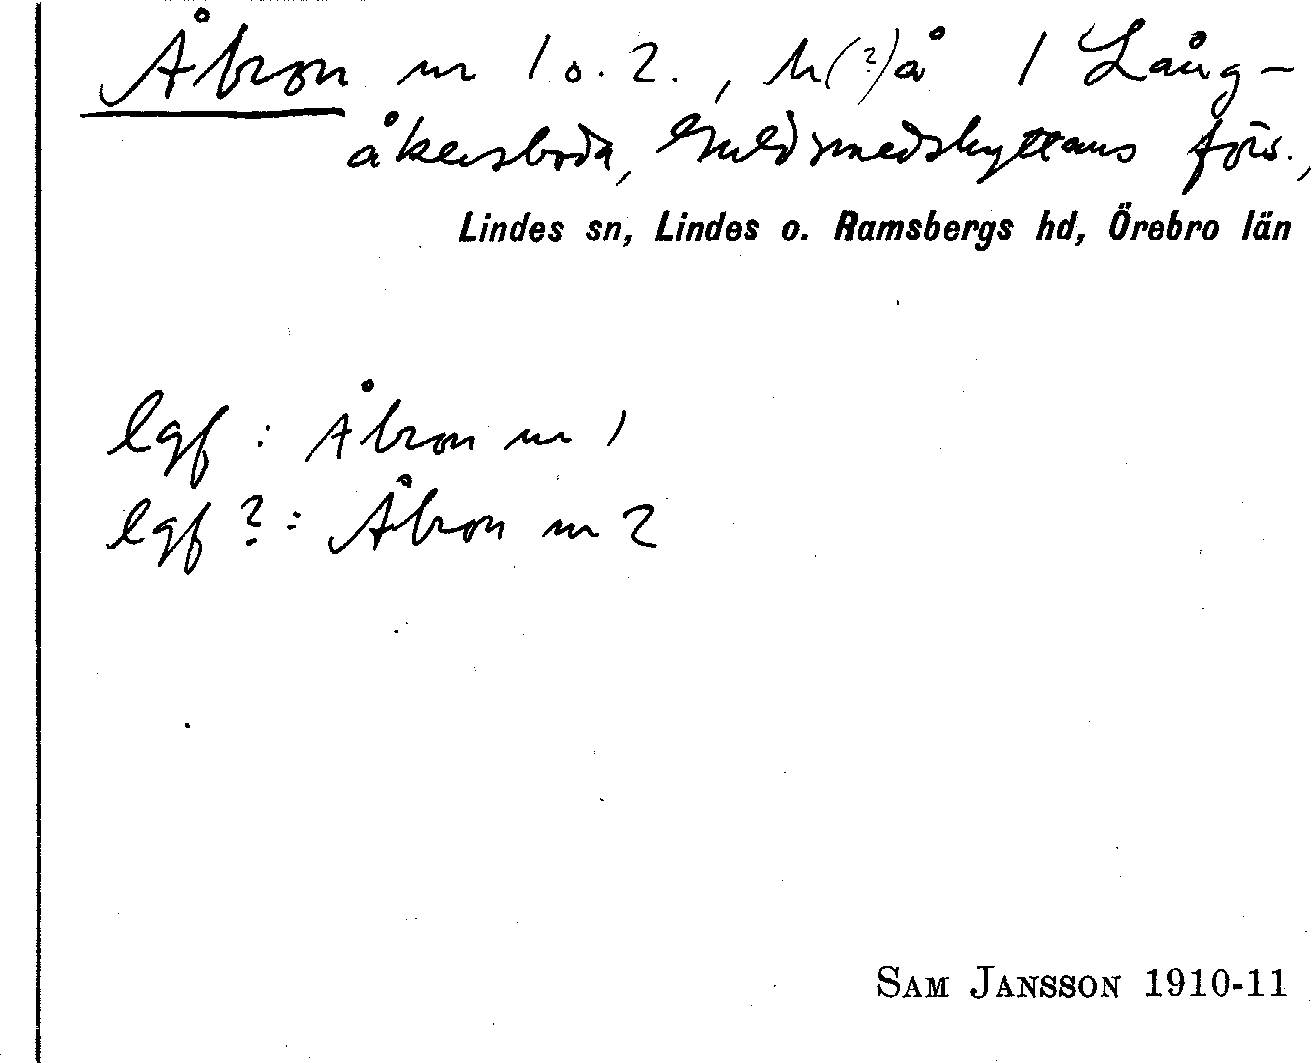 Åbron nr 1 o. 2., h(?)å 1 Lång-
åkersboda, Guldsmedshyttans förs.,
Lindes sn, Lindes o. Ramsbergs hd, Örebro län
lgf : Åbron nr 1
lgf ? : Åbron nr 2
SAM JANSSON 1910-11